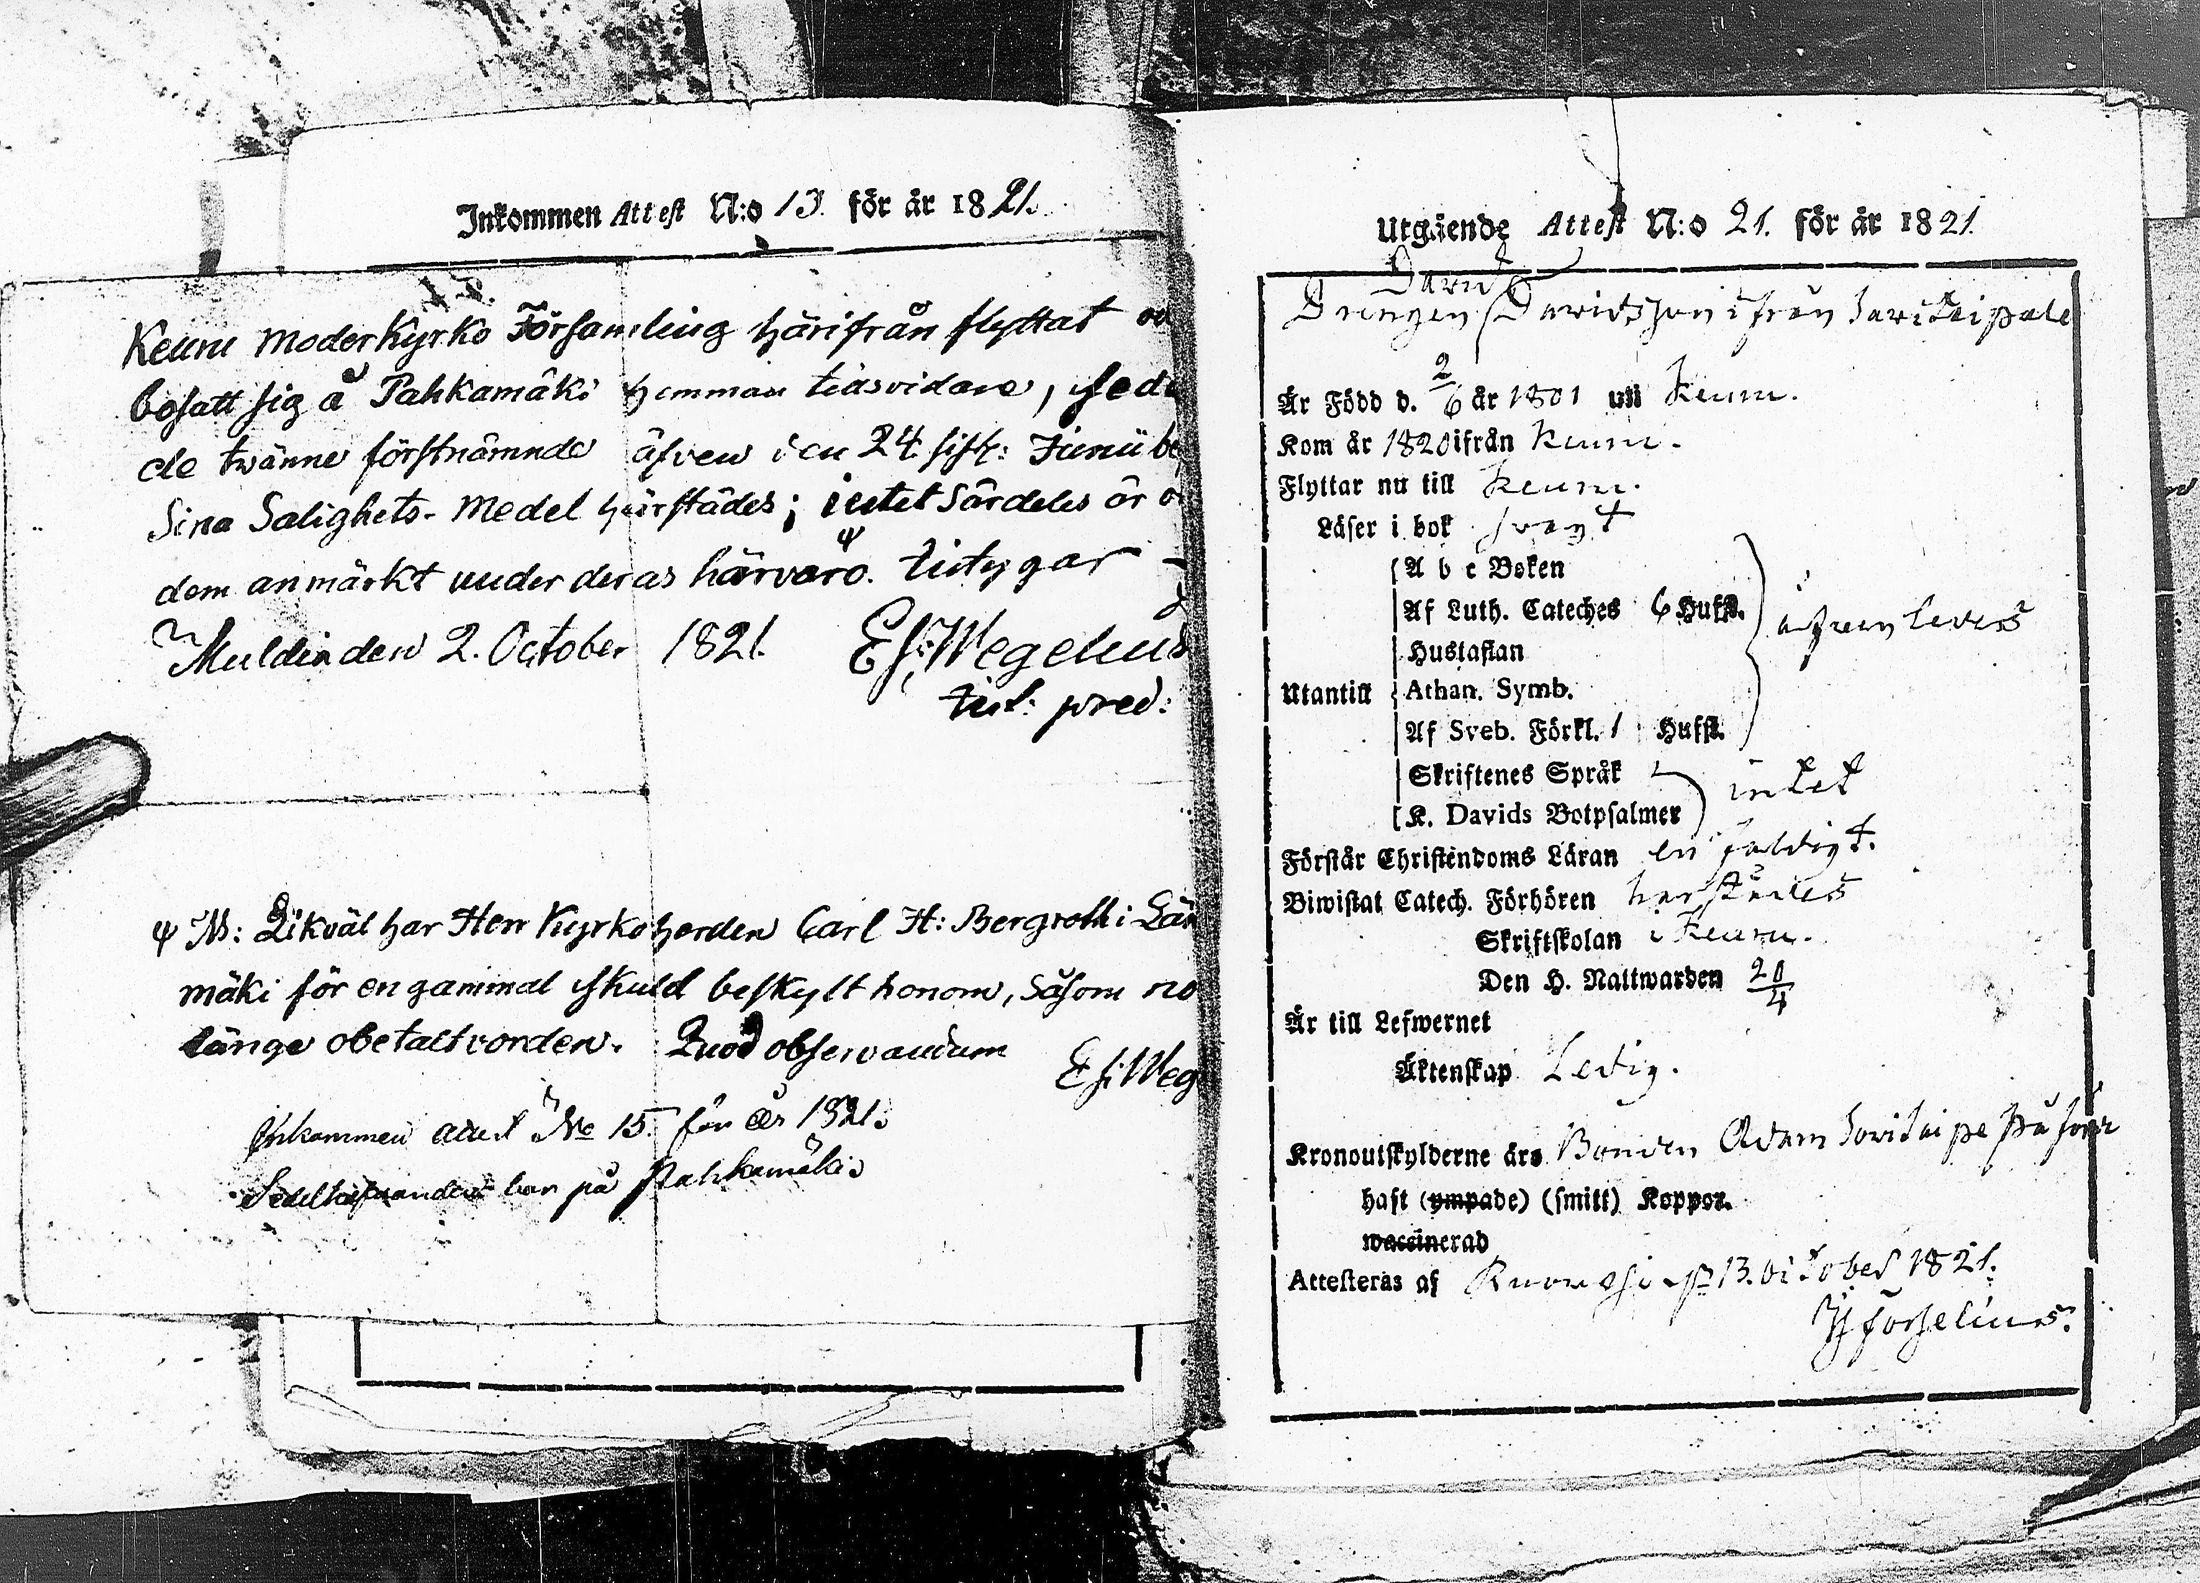 Inkommen Attest N:o 13. för år 1821.
15.
Keuru Moderkyrko Församling härifrån flyttat
bosatt sig å Pahkamäki hemman tidsvidare,
de tvänne förstnämnde äfven den 24 sistl: Junii
Sina Salighets-Medel härstädes; intet Särdeles är
dem anmärkt under deras härvaro. Ψ testy gar
Muldia den 2. October 1821. E J: Wegelius
test: pred:
Ψ NB: Likväl har Herr Kyrkoherden Carl H: Bergroth i
mäki för en gammal skuld beskylt honom, såsom
länge obetalt vorden. Quod observandum
E J: Weg
Inkommen attest No 15. för år 1821.
bor på Pahkamäki.
Utgående Attest N:o 21. för år 1821.
David
Drengen Davidsson ifrån Savitaipale
Är Född d. 2/6 år 1801 uti Keuru.
Kom år 1820 ifrån Keuru.
Flyttar nu till Keuru.
Läser i bok svagt
A b c Boken
Af Luth. Cateches 6 Hufst.
Hustaflan
Utantill Athan. Symb.
Af Sveb. Förkl. 1 Hufst.
Skriftenes Språk
intet
K. Davids Botpsalmer
Förstår Christendoms Läran enfaldigt.
Biwistat Catech. Förhören härstädes
Skriftskolan i Keuru.
Den H. Nattwarden 20/4
Är till Lefwernet
Äktenskap Ledig.
Kronoutskylderne äro Bonden Adam Savitaipale påförde
haft (ympade) (smitt) Koppor.
waccinerad
Attesteras af Ruovesi 13. October 1821.
H Forselius.